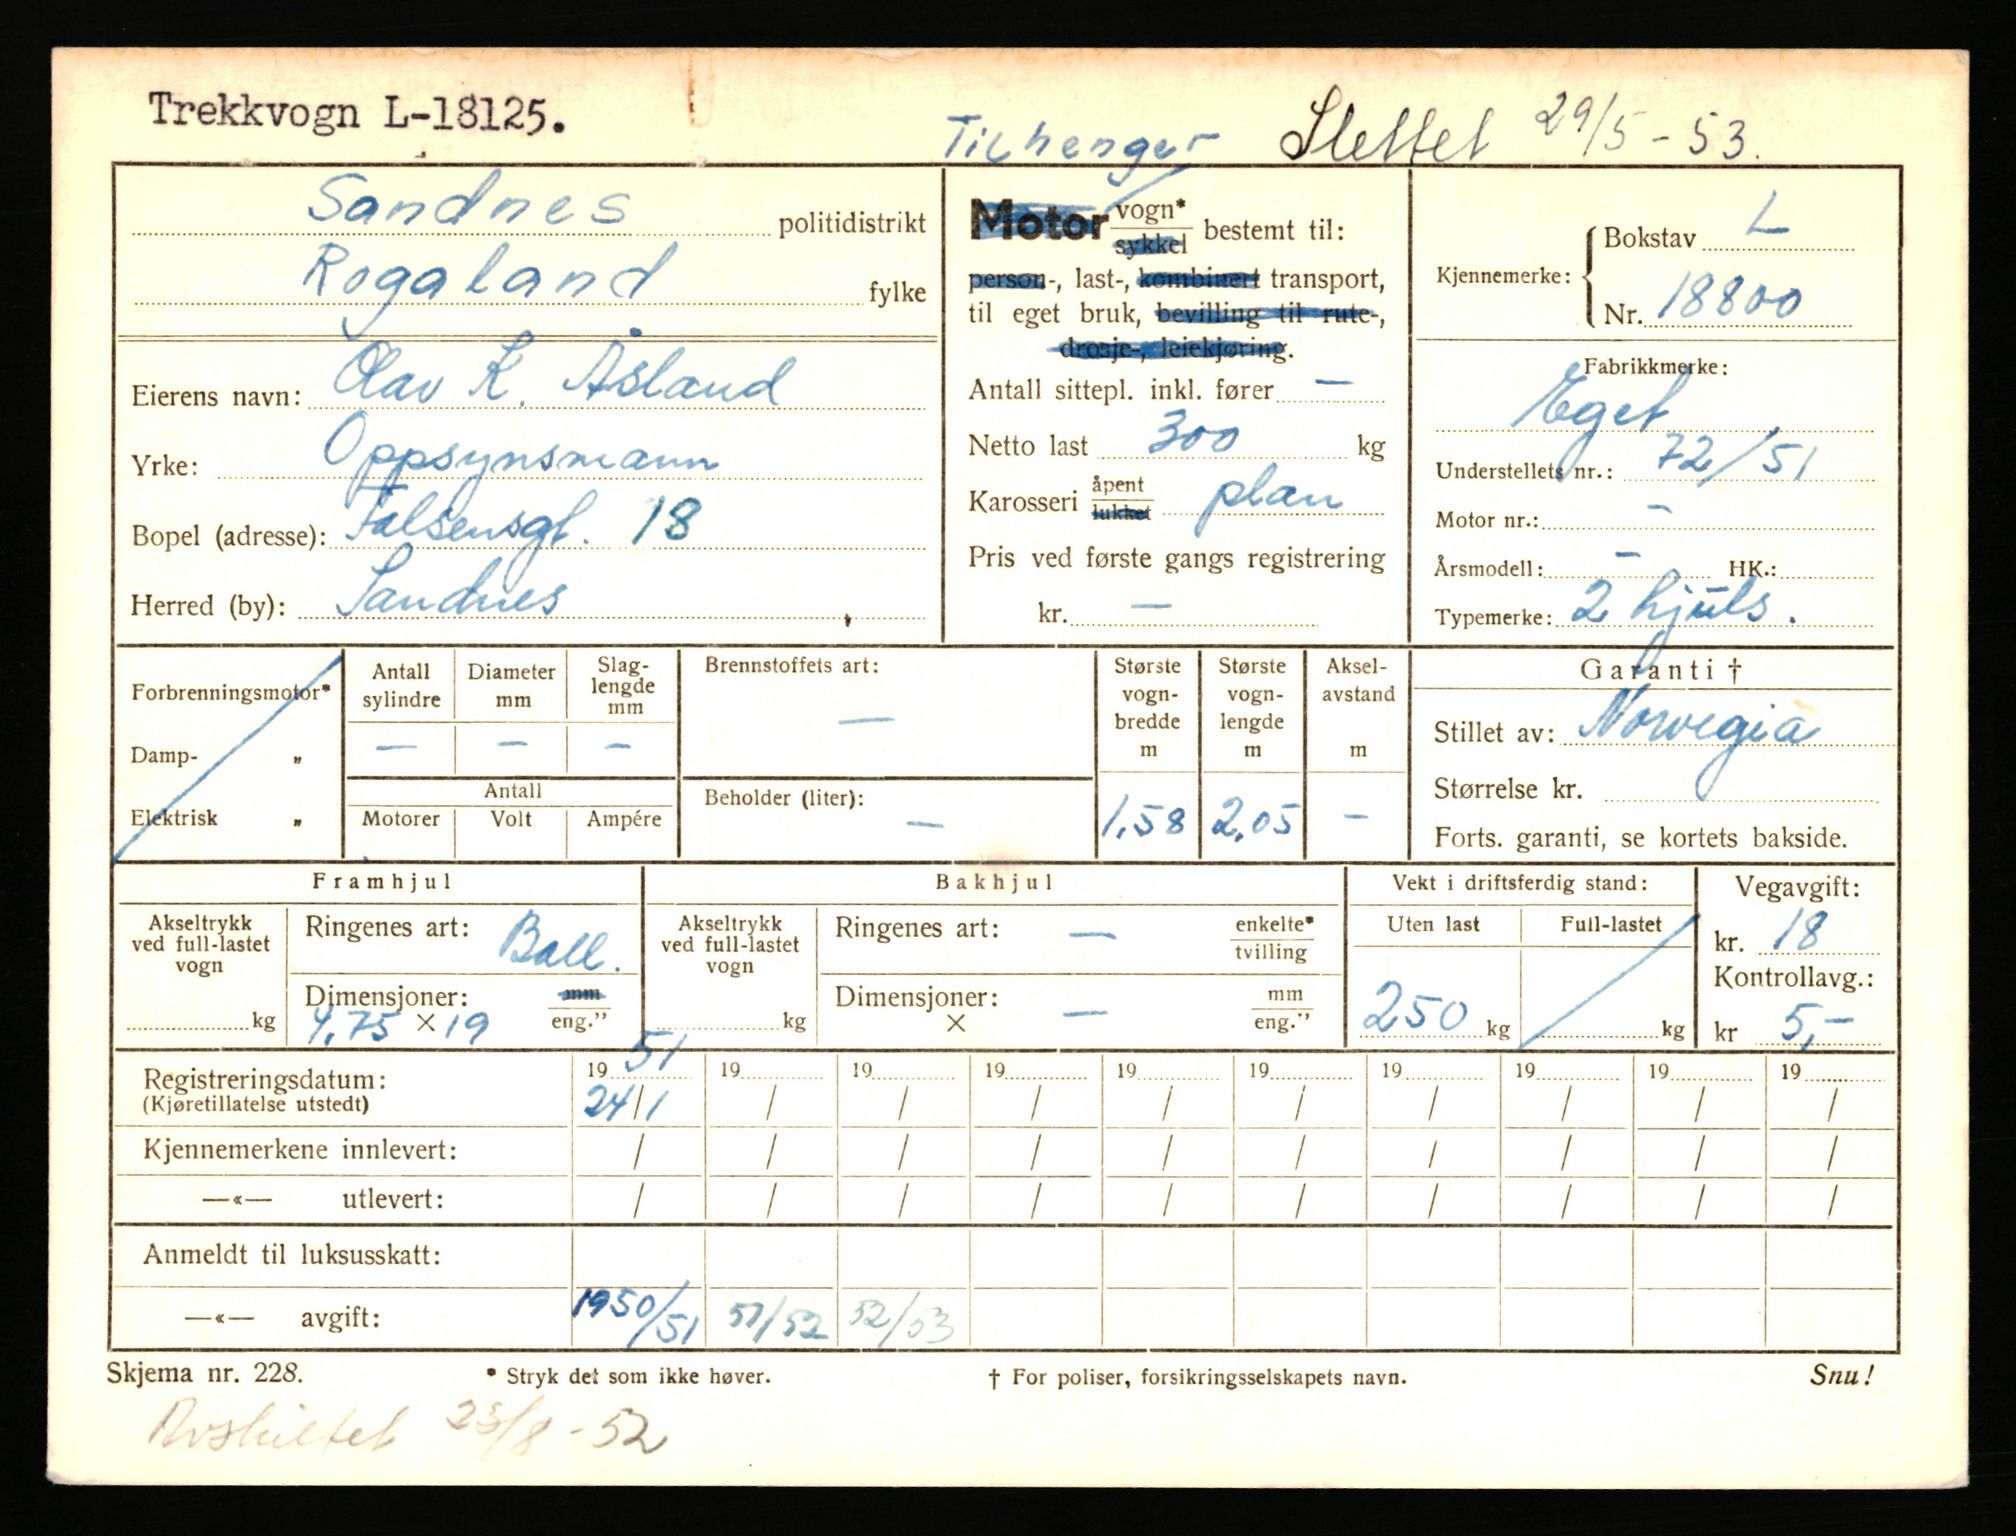 Trekkvogn L-18125.
Tilhenger Slettet 29/5-53.
Sandnes politidistrikt
Rogaland fylke
Eierens navn: Olav K. Åsland
Yrke: Oppsynsmann
Bopel (adresse): Falsensgt. 18
Herred (by): Sandnes
Motor vogn*
sykkel bestemt til:
person-, last-, kombinert transport,
til eget bruk, bevilling til rute-,
drosje-, leiekjøring.
Antall sittepl. inkl. fører —
Netto last 300 kg
Karosseri åpent
lukket plan
Pris ved første gangs registrering
kr. —
Kjennemerke: Bokstav L
Nr. 18800
Fabrikkmerke:
Eget
Understellets nr.: 72/51
Motor nr.: —
Årsmodell: — HK.:
Typemerke: 2 hjuls.
Forbrenningsmotor*
Damp- „
Elektrisk „
Antall sylindre — Diameter mm — Slag-lengde mm —
Antall
Motorer Volt Ampére
Brennstoffets art:
—
Beholder (liter):
—
Største vogn-bredde m 1,58
Største vogn-lengde m 2,05
Aksel-avstand m —
Garanti †
Stillet av: Norvegia
Størrelse kr.
Forts. garanti, se kortets bakside.
Framhjul
Akseltrykk ved full-lastet vogn
kg
Ringenes art: Ball.
Dimensjoner: mm
4,75 × 19 eng."
Bakhjul
Akseltrykk ved full-lastet vogn
kg
Ringenes art: — enkelte*
tvilling
Dimensjoner: mm
× — eng."
Vekt i driftsferdig stand:
Uten last Full-lastet
250 kg kg
Vegavgift:
kr. 18
Kontrollavg.:
kr 5,-
Registreringsdatum: 19 51 19 19 19 19 19 19 19 19 19
(Kjøretillatelse utstedt) 24/1 / / / / / / / / /
Kjennemerkene innlevert: / / / / / / / / / /
—«— utlevert: / / / / / / / / / /
Anmeldt til luksusskatt:
—«— avgift: 1950/51 51/52 52/53
Skjema nr. 228. * Stryk det som ikke høver. † For poliser, forsikringsselskapets navn. Snu!
Avskiltet 23/8-52